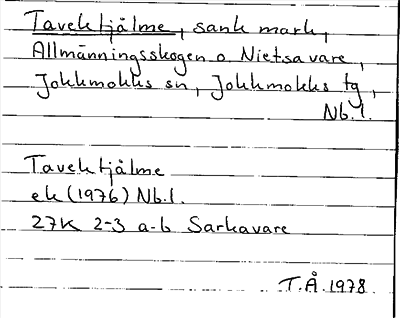 Tavektjålme, sank mark,
Allmänningsskogen o. Nietsavare,
Jokkmokks sn, Jokkmokks tg,
Nb.l.
Tavektjålme
ek (1976) Nb.l.
27K 2-3 a-b Sarkavare
T.Å.1978